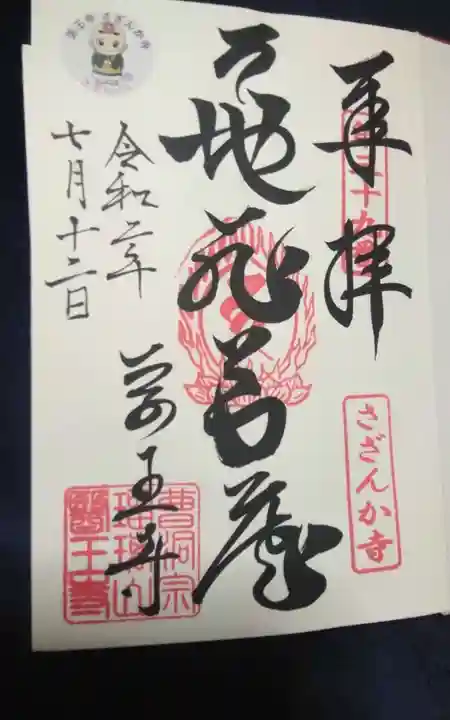 奉拝
さざんか寺
地蔵菩薩
令和二年
七月十二日
医王寺
曹洞宗
瑠璃山
醫王寺